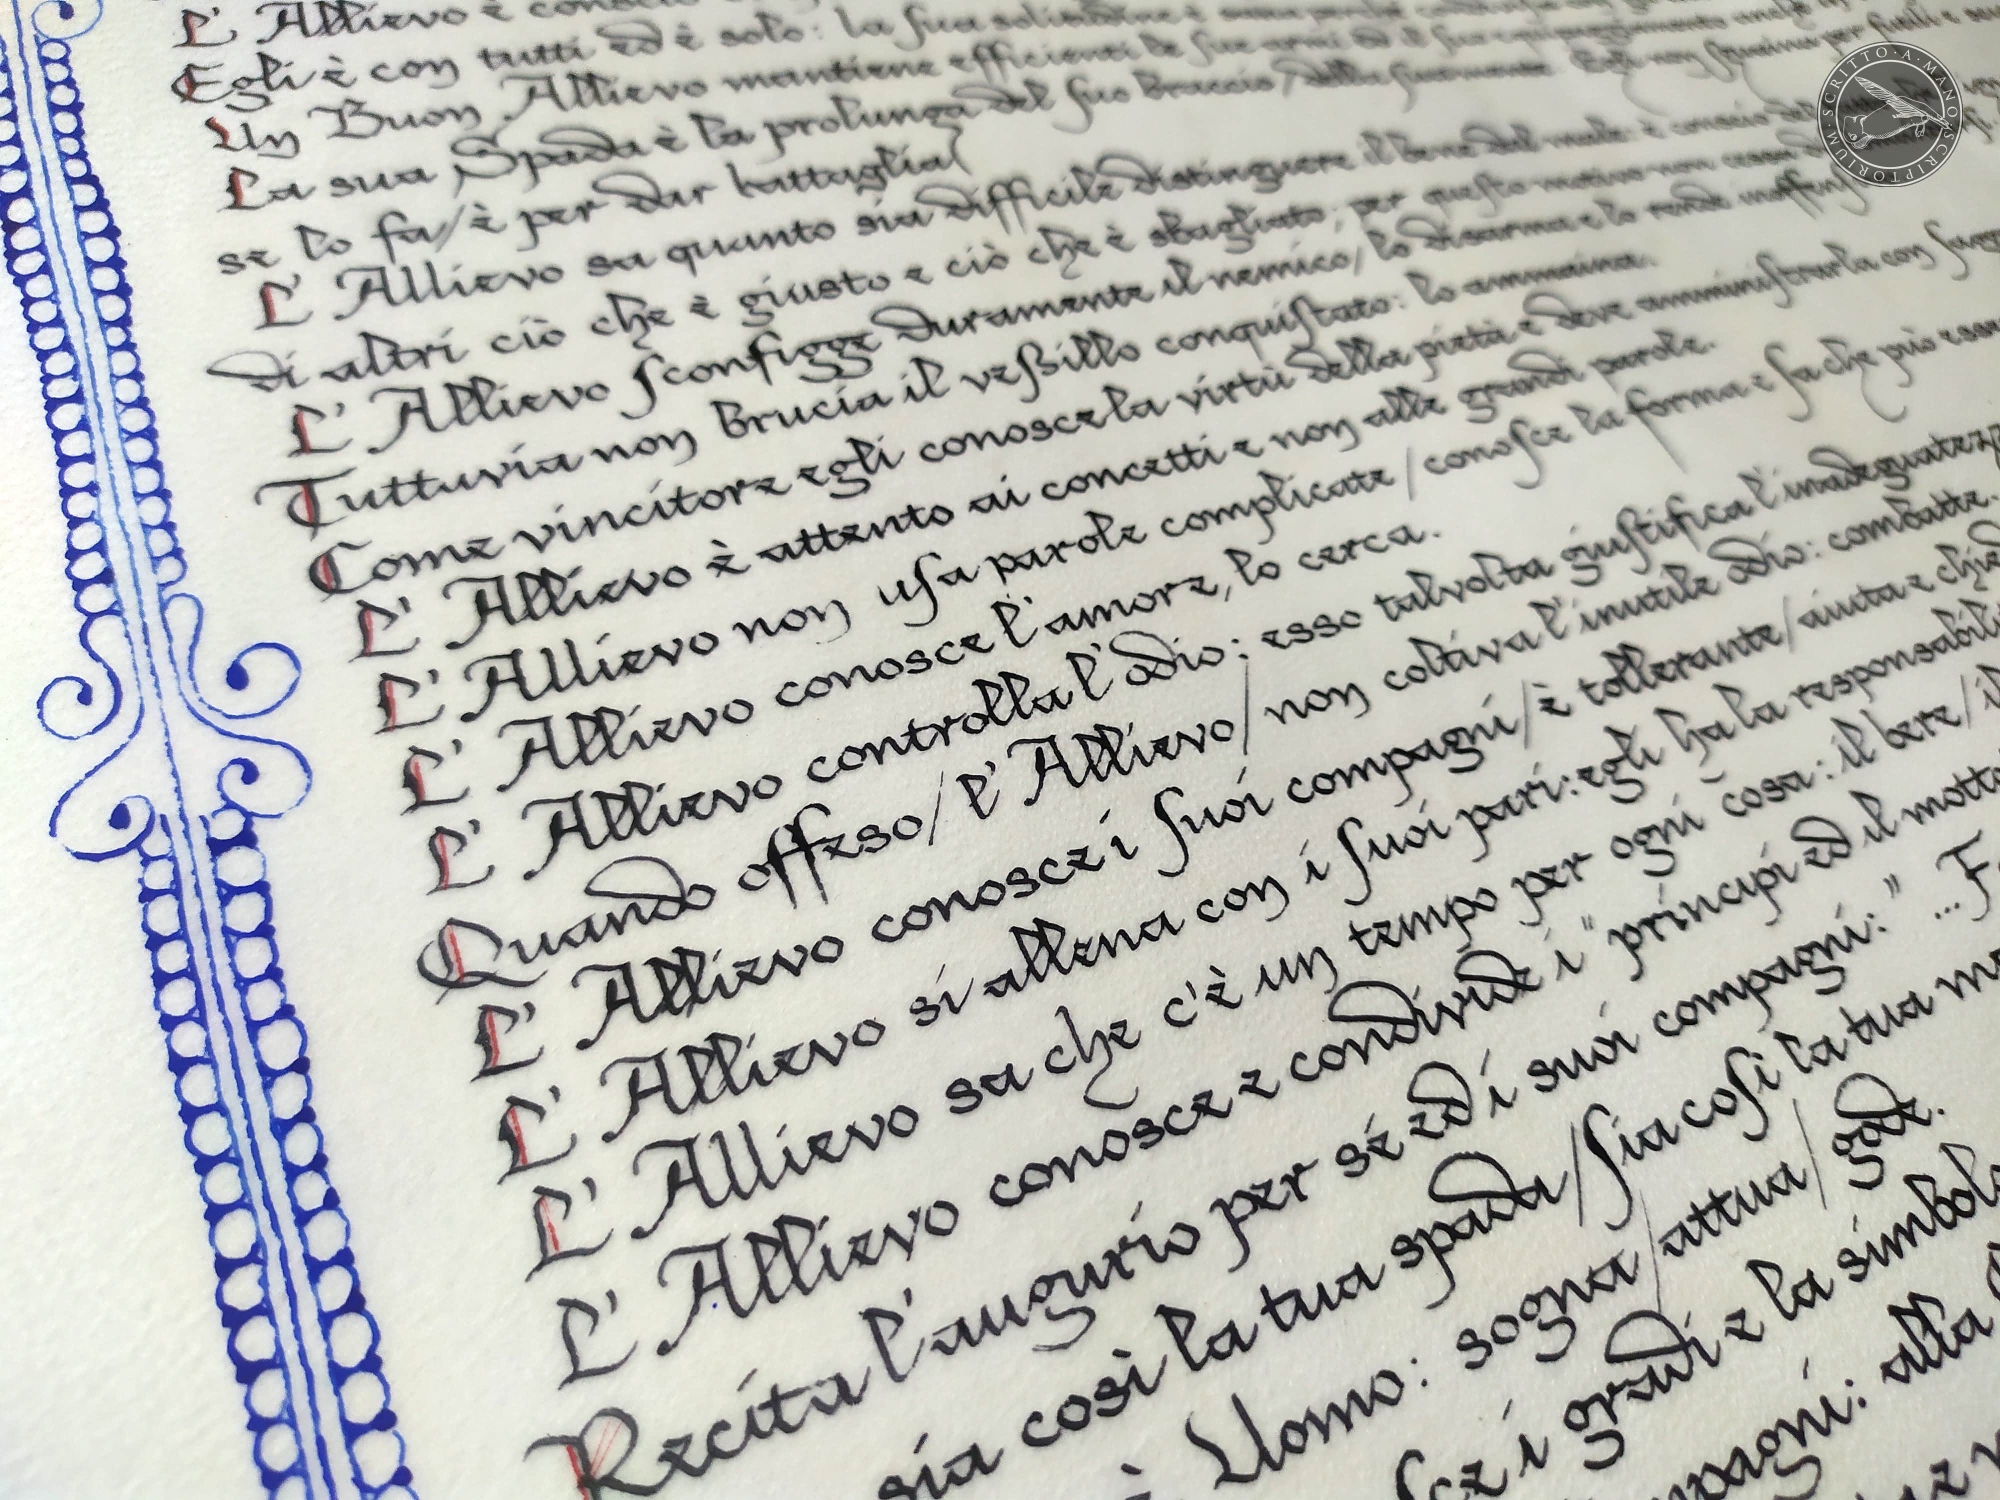 L' Allievo è
Egli è con tutti ed è solo: la sua solitudine è
Un Buon Allievo mantiene efficienti le sue armi ed il suo
La sua Spada è la prolunga del suo braccio/ della sua mente. Egli non sguaina per futili e
se lo fa/ è per dar battaglia
L' Allievo sa quanto sia difficile distinguere il bene dal male: è conscio
di altri ciò che è giusto e ciò che è sbagliato: per questo motivo non cessa
L' Allievo sconfigge duramente il nemico/ lo disarma e lo rende inoffensivo
Tuttavia non brucia il vessillo conquistato: lo ammaina.
Come vincitore egli conosce la virtù della pietà e deve amministrarla con
L' Allievo è attento ai concetti e non alle grandi parole.
L' Allievo non usa parole complicate/ conosce la forma e sa che può
L' Allievo conosce l'amore, lo cerca.
L' Allievo controlla l'odio: esso talvolta giustifica l'inadeguatezz
Quando offeso/ l' Allievo/ non coltiva l'inutile odio: combatte.
L' Allievo conosce i suoi compagni/ è tollerante/ aiuta e
L' Allievo si allena con i suoi pari: egli ha la responsabili
L' Allievo sa che c'è un tempo per ogni cosa: il bere/
L' Allievo conosce e condivide i "principi ed il motto
Recita l'augurio per sé ed i suoi compagni: " ...
sia così la tua spada/ sia così la tua
è Uomo: sogna/ attua/ gode.
i gradi e la simbol
compagni: alla
SCRITTO·A·MANO·SCRIPTORIUM